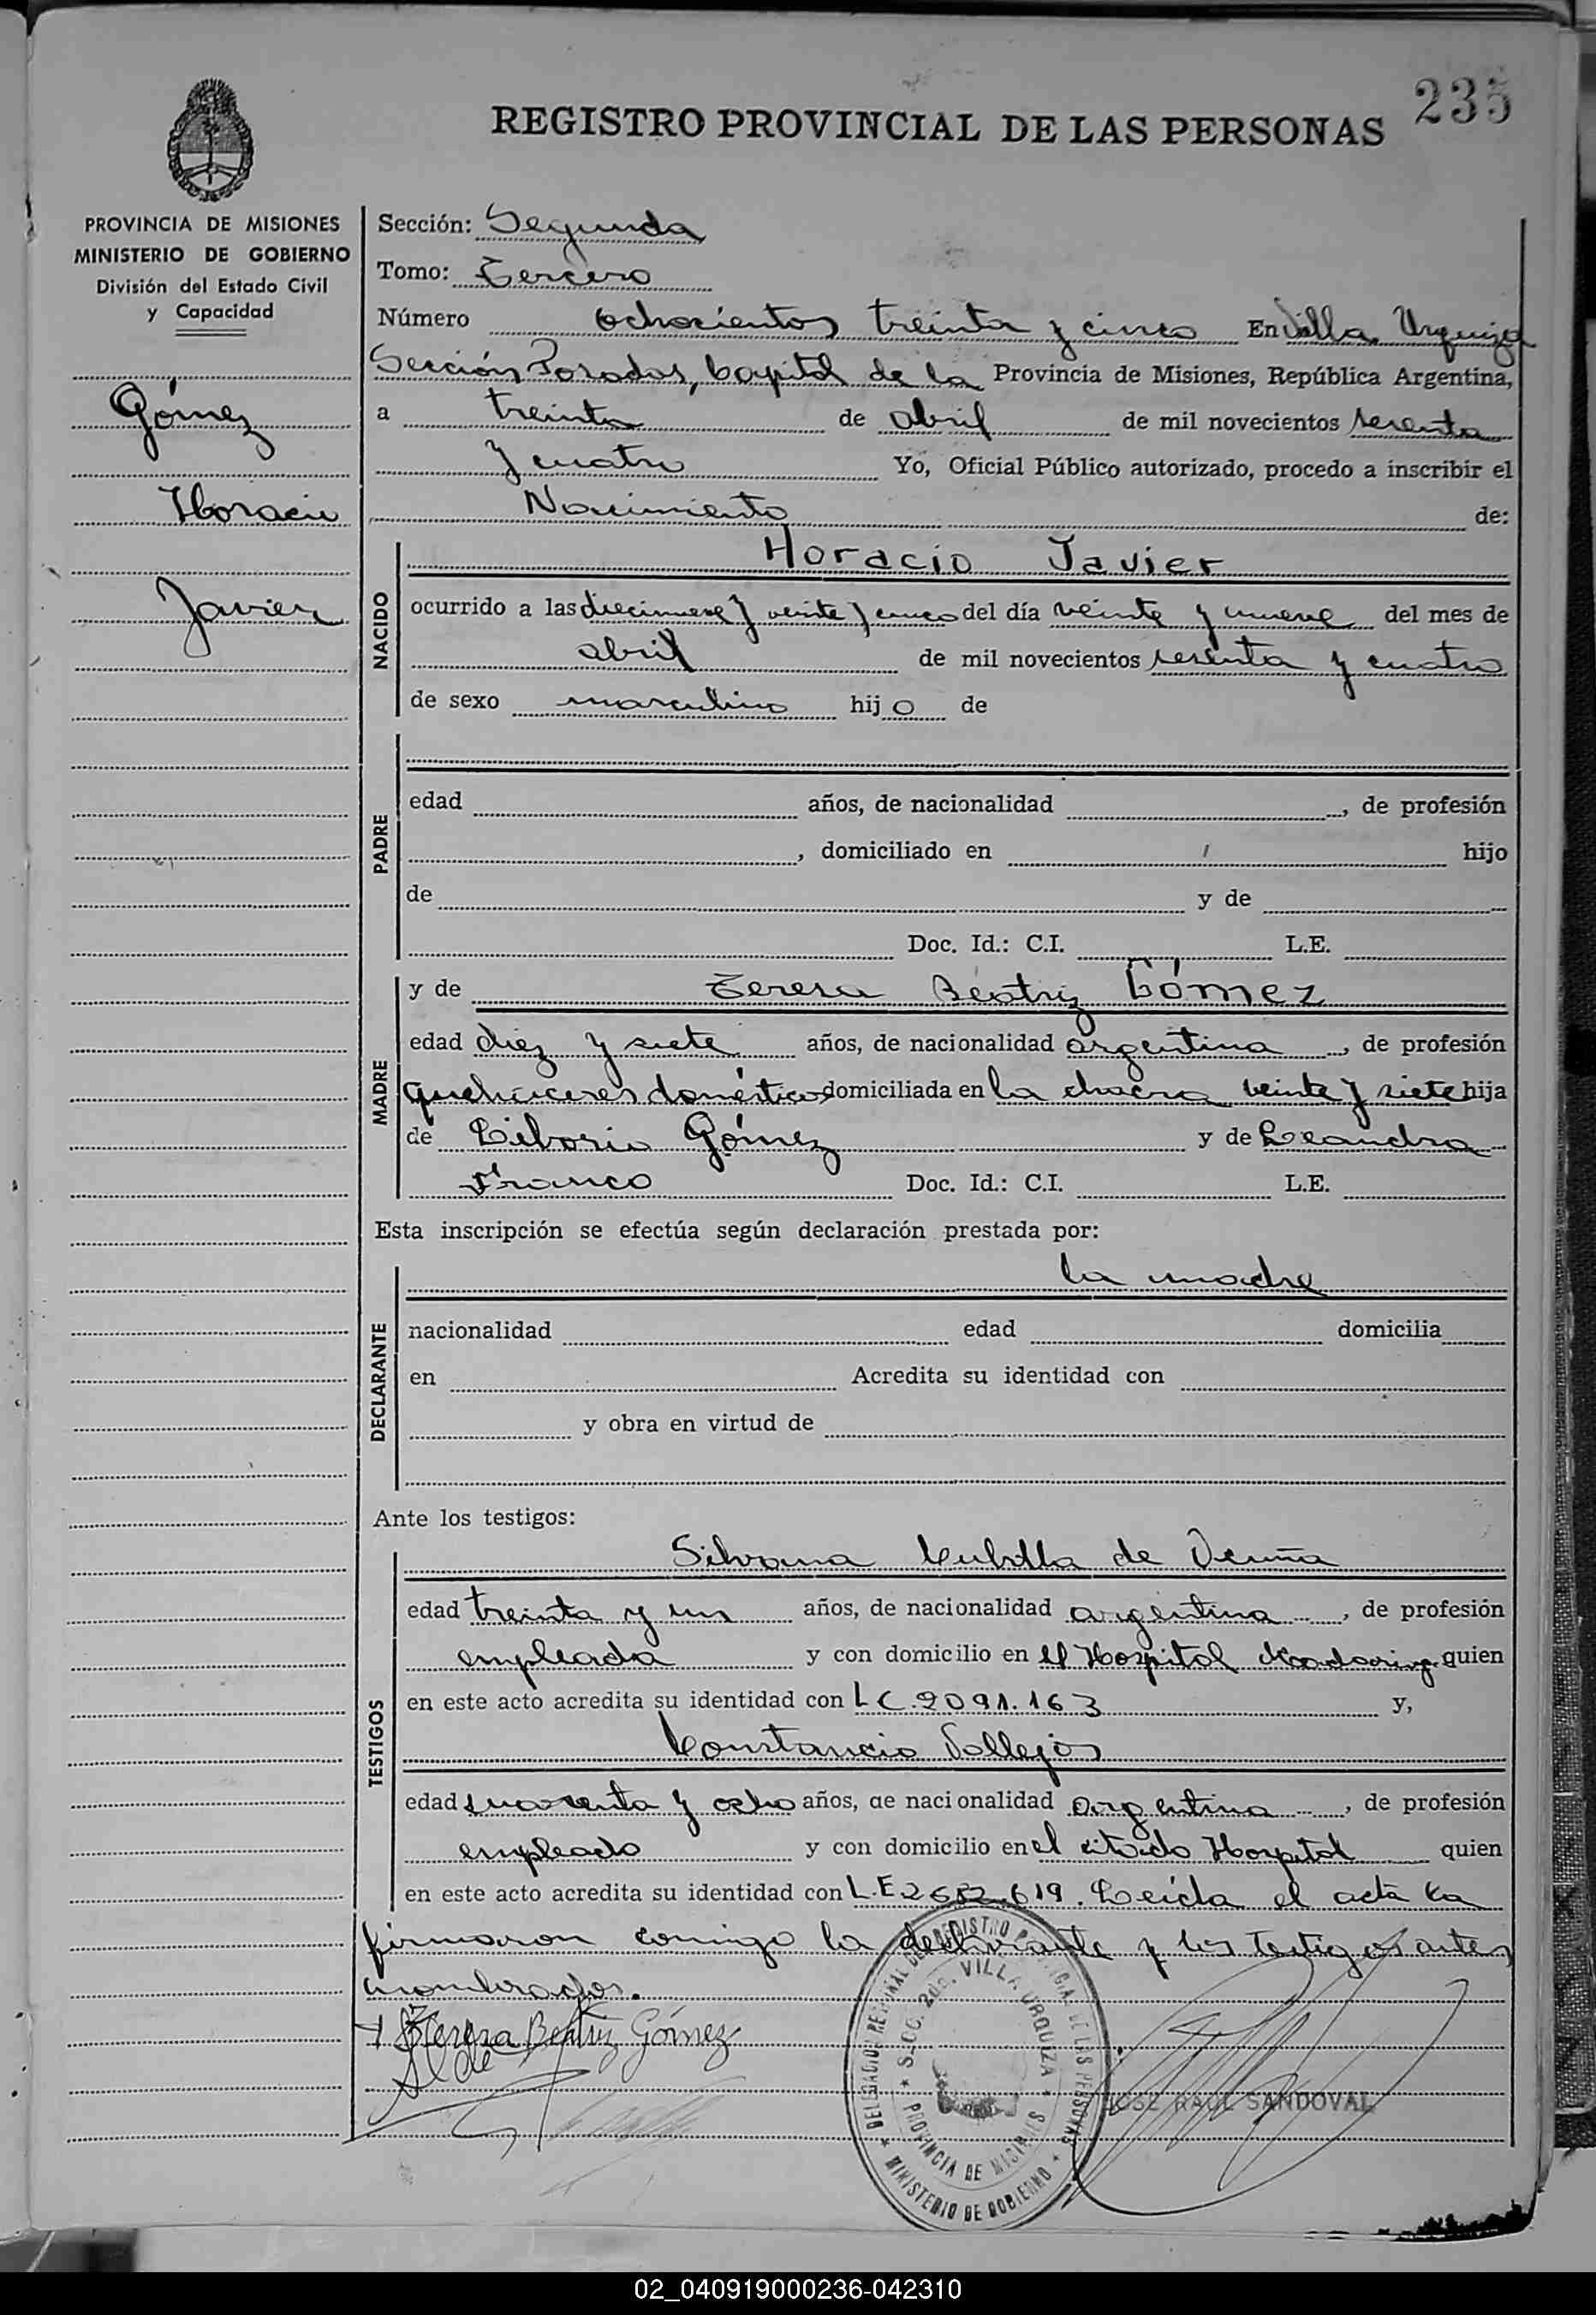 235
REGISTRO PROVINCIAL DE LAS PERSONAS
PROVINCIA DE MISIONES
MINISTERIO DE GOBIERNO
División del Estado Civil
y Capacidad
Gómez
Horacio
Javier
Sección: Segunda
Tomo: Tercero
Número ochocientos treinta y cinco En Villa Urquiza
Sección Posadas, Capital de la Provincia de Misiones, República Argentina,
a treinta de abril de mil novecientos sesenta
y cuatro Yo, Oficial Público autorizado, procedo a inscribir el
Nacimiento de:
NACIDO
Horacio Javier
ocurrido a las diecinueve y veinte y cinco del día veinte y nueve del mes de
abril de mil novecientos sesenta y cuatro
de sexo masculino hijo de
PADRE
edad años, de nacionalidad , de profesión
, domiciliado en hijo
de y de
Doc. Id.: C.I. L.E.
MADRE
y de Teresa Beatriz Gómez
edad diez y siete años, de nacionalidad argentina, de profesión
quehaceres domésticos domiciliada en la chacra veinte y siete hija
de Liborio Gómez y de Leandra
Franco Doc. Id.: C.I. L.E.
Esta inscripción se efectúa según declaración prestada por:
DECLARANTE
la madre
nacionalidad edad domicilia
en Acredita su identidad con
y obra en virtud de
Ante los testigos:
TESTIGOS
Silvana Cubilla de
edad treinta y un años, de nacionalidad argentina, de profesión
empleada y con domicilio en el Hospital quien
en este acto acredita su identidad con L.C. 2091.163 y,
Constancio Vallejos
edad cuarenta y ocho años, de nacionalidad argentina, de profesión
empleado y con domicilio en el citado Hospital quien
en este acto acredita su identidad con L.E. 2682.619. Leída el acta la
firmaron conmigo la declarante y los testigos antes
nombrados.
Teresa Beatriz Gómez
DELEGACION REGIONAL DEL REGISTRO PROVINCIAL DE LAS PERSONAS
SECC. 2da. VILLA URQUIZA
PROVINCIA DE MISIONES
MINISTERIO DE GOBIERNO
JOSE RAUL SANDOVAL
02_040919000236-042310